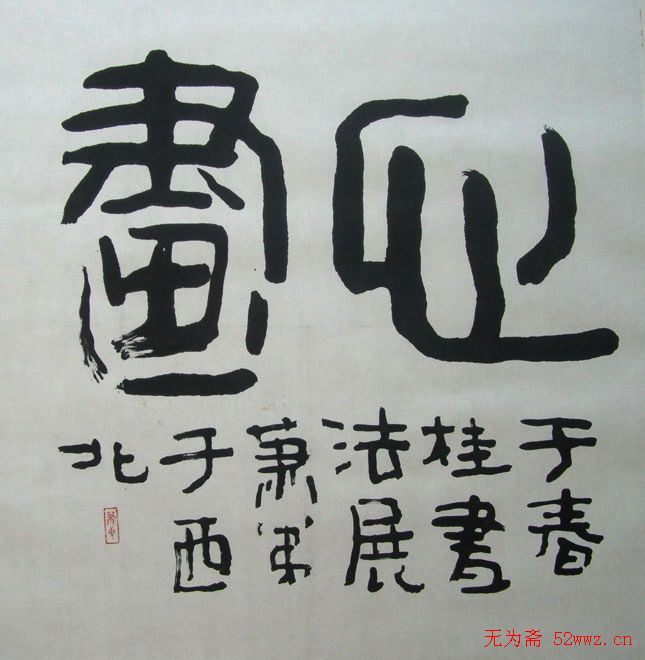 心畫
于春
桂書
法展
蕭
于西
北
无为斋 52wwz.cn